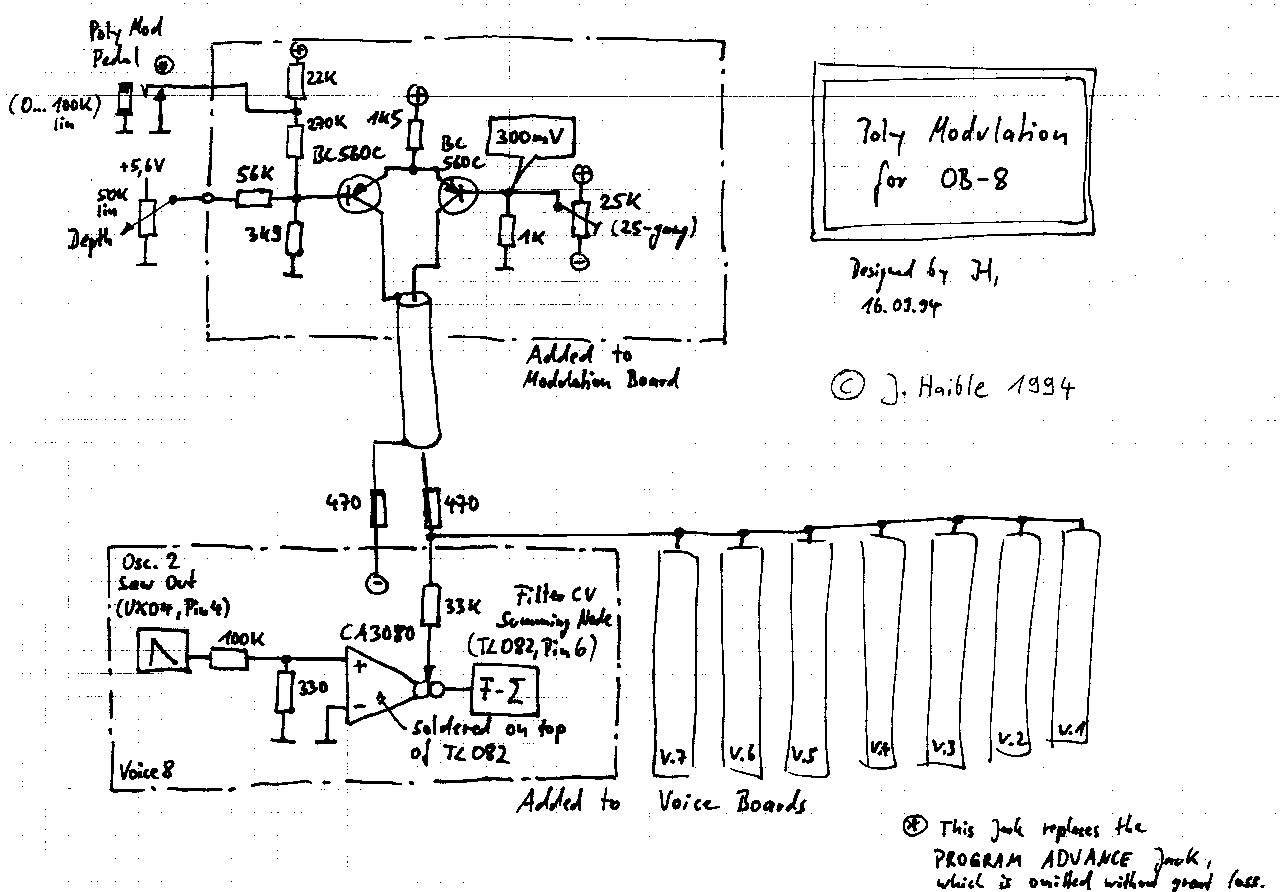 Poly Mod
Pedal
⊛
(0... 100K)
lin
+
22K
270K
+
1K5
BC560C
BC
560C
300mV
+5,6V
50K
lin
Depth
56K
3K9
1K
+
25K
(25-gang)
−
Added to
Modulation Board
Poly Modulation
for OB-8
Designed by JH,
16.09.94
© J. Haible 1994
470
470
−
Osc. 2
Saw Out
(VX04, Pin 4)
100K
330
CA3080
+
-
33K
Filter CV
Summing Node
(TL082, Pin 6)
F-Σ
soldered on top
of TL082
Voice 8
V.7
V.6
V.5
V.4
V.3
V.2
V.1
Added to Voice Boards
⊛ This Jack replaces the
PROGRAM ADVANCE Jack,
which is omitted without great loss.